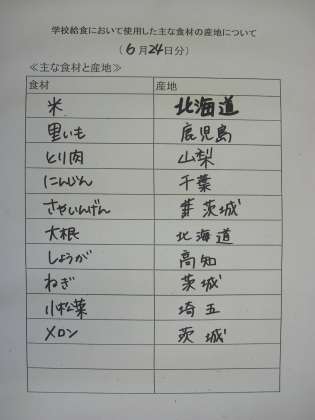 学校給食において使用した主な食材の産地について
（ 6 月 24 日分）
≪主な食材と産地≫
食材 産地
米 北海道
里いも 鹿児島
とり肉 山梨
にんじん 千葉
さやいんげん 茨城
大根 北海道
しょうが 高知
ねぎ 茨城
小松菜 埼玉
メロン 茨城